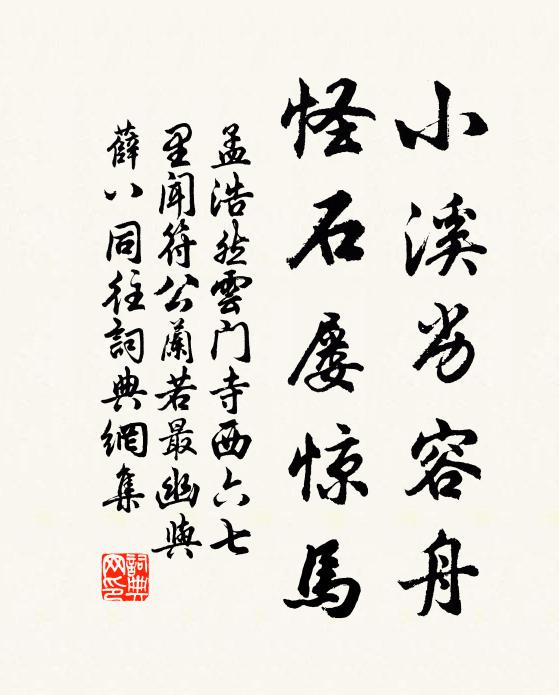 小溪劣容舟
怪石屡惊馬
孟浩然雲门寺西六七
里闻符公蘭若最幽與
薛八同往詞典網集
詞典
网印